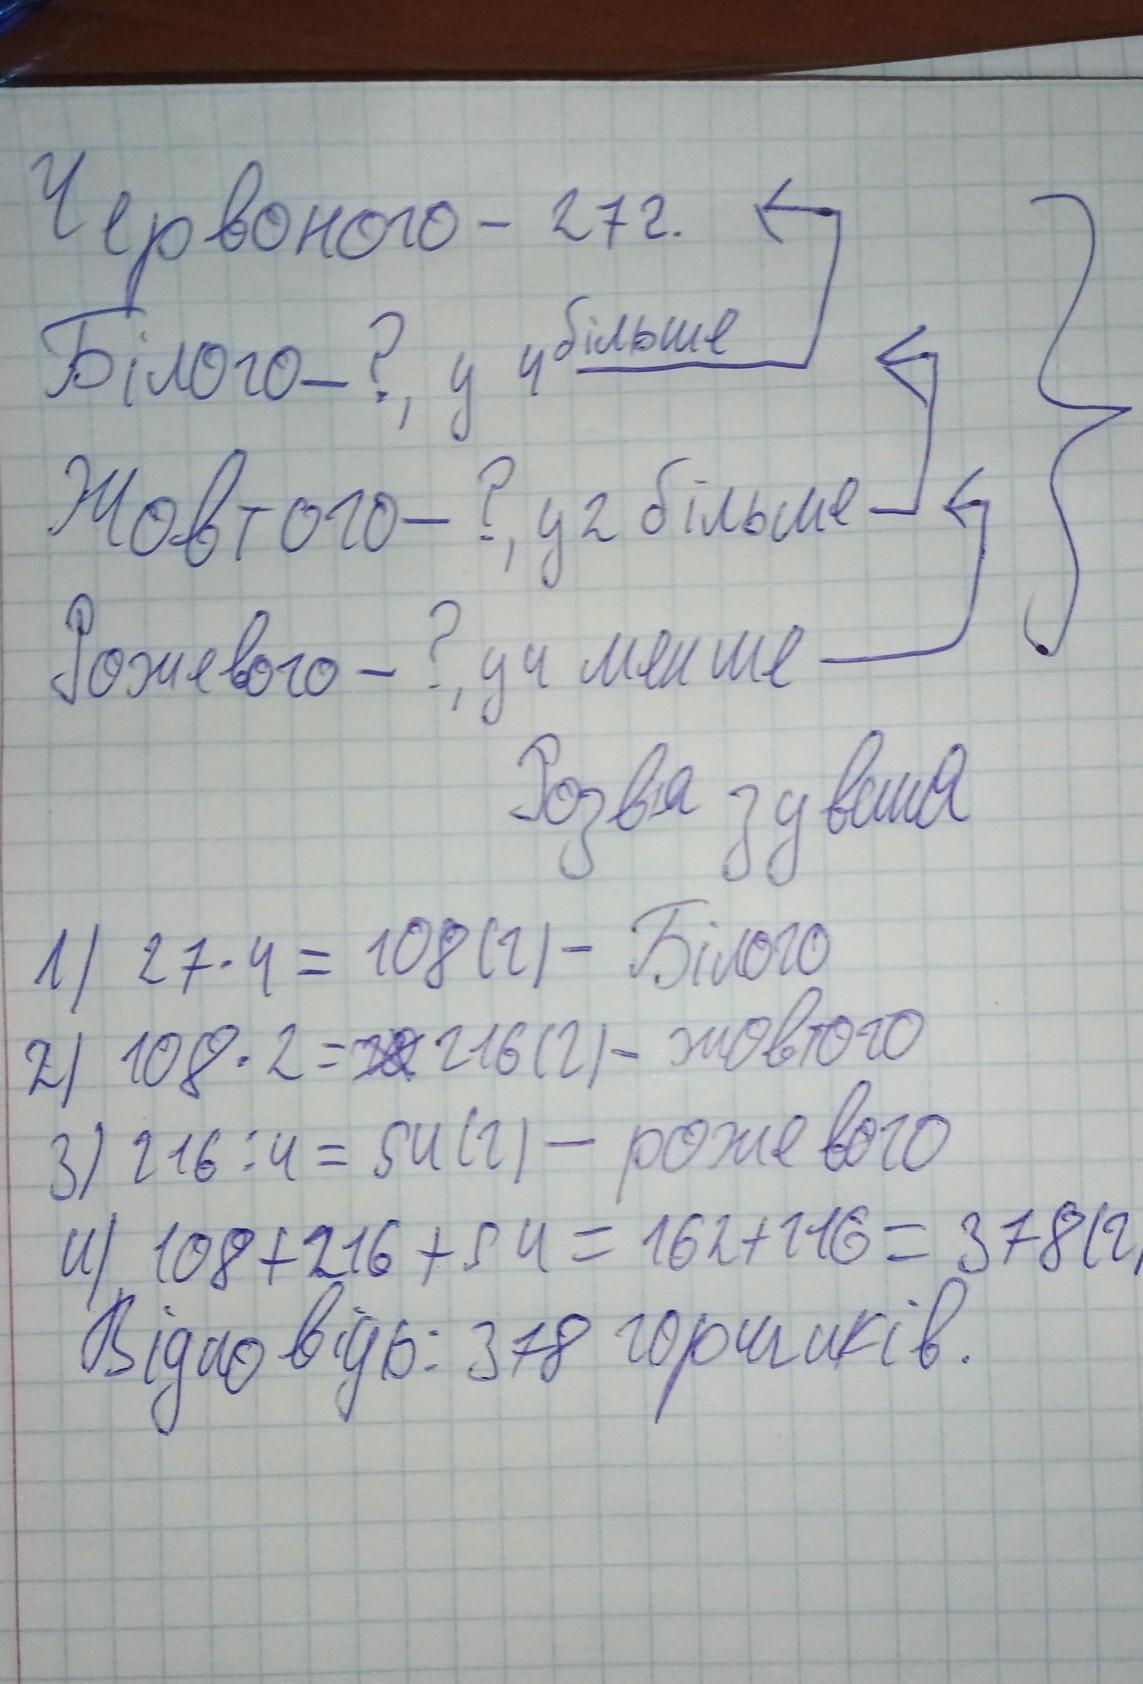 Червоного - 27 г.
Білого - ?, у 4 більше
Жовтого - ?, у 2 більше
Рожевого - ?, у 4 менше
Розвязування
1) 27 · 4 = 108 (г) - Білого
2) 108 · 2 = 216 (г) - жовтого
3) 216 : 4 = 54 (г) - рожевого
4) 108 + 216 + 54 = 162 + 216 = 378 (г)
Відповідь: 378 горшиків.